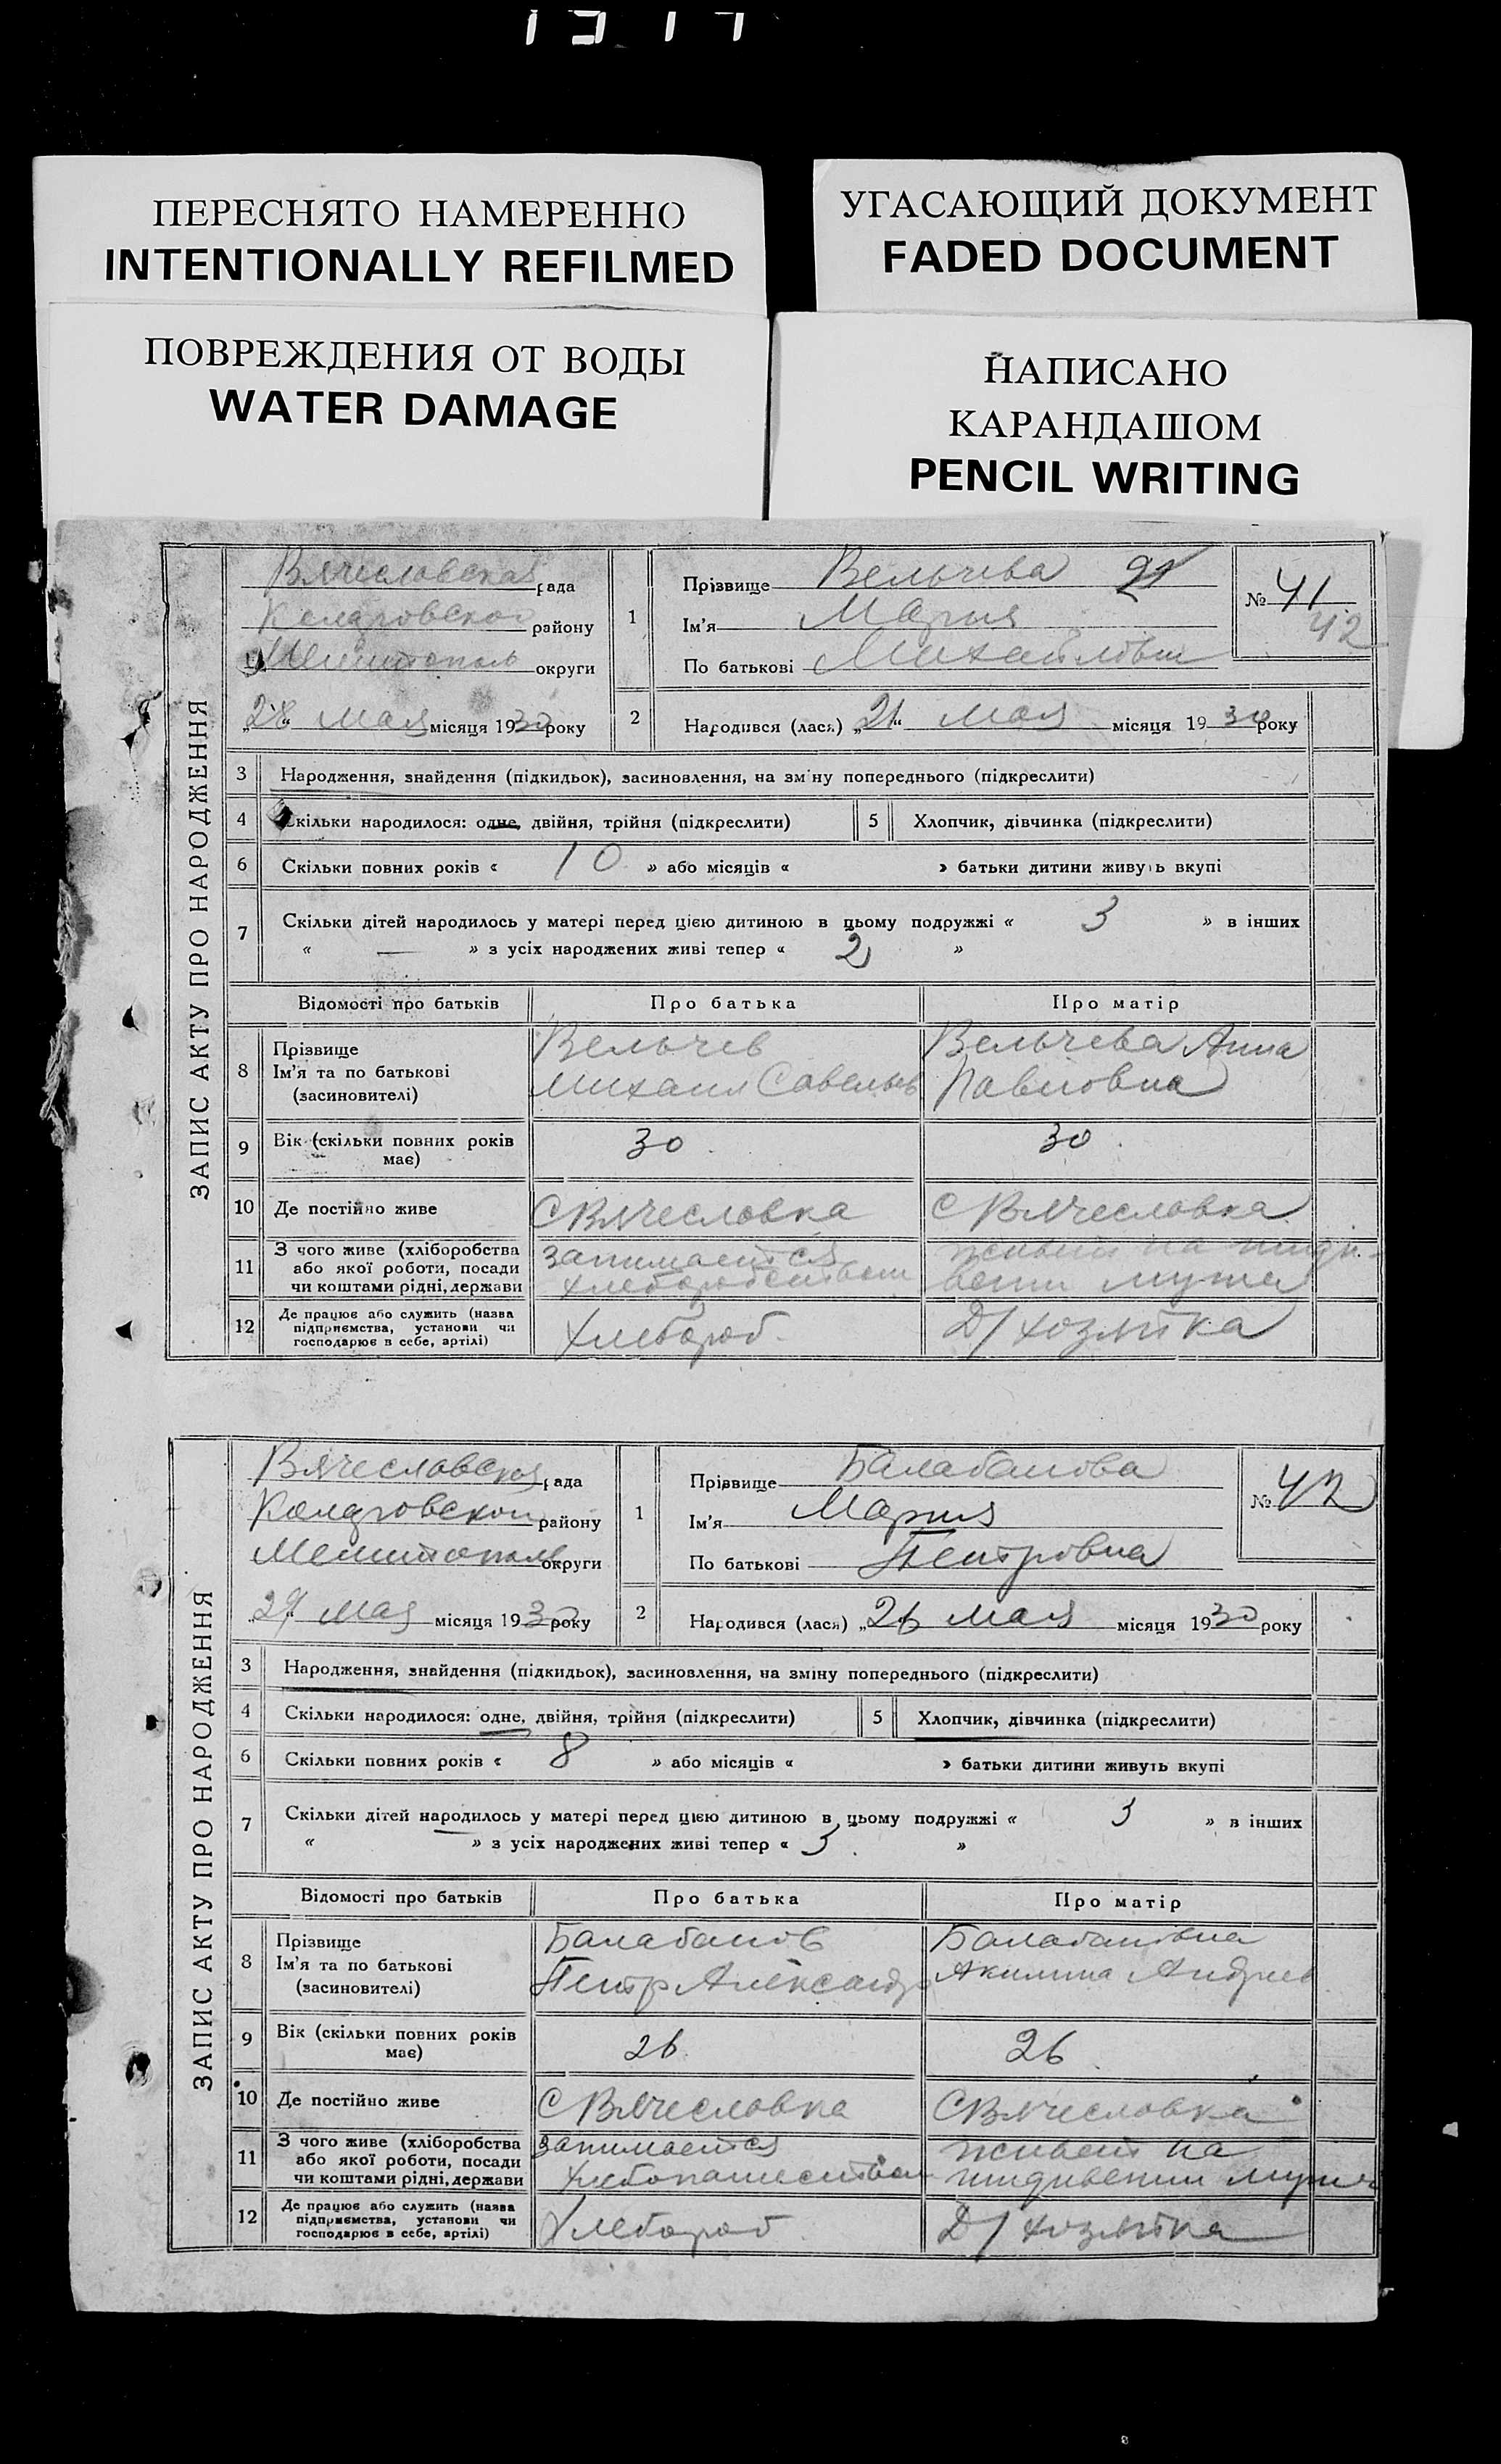 ПЕРЕСНЯТО НАМЕРЕННО
INTENTIONALLY REFILMED
УГАСАЮЩИЙ ДОКУМЕНТ
FADED DOCUMENT
ПОВРЕЖДЕНИЯ ОТ ВОДЫ
WATER DAMAGE
НАПИСАНО
КАРАНДАШОМ
PENCIL WRITING
ЗАПИС АКТУ ПРО НАРОДЖЕННЯ
Вячеславская рада
району
Мелитополь округи
„28“ Мая місяця 1930 року
1 Прізвище Вельчева 21
Ім'я Мария
По батькові Михайловна
№ 41
42
2 Народився (лася) „21“ мая місяця 1930 року
3 Народження, знайдення (підкидьок), засиновлення, на зміну попереднього (підкреслити)
4 Скільки народилося: одне, двійня, трійня (підкреслити) 5 Хлопчик, дівчинка (підкреслити)
6 Скільки повних років « 10 » або місяців « » батьки дитини живуть вкупі
7 Скільки дітей народилось у матері перед цією дитиною в цьому подружжі « 3 » в інших
« — » з усіх народжених живі тепер « 2 »
Відомості про батьків Про батька Про матір
8 Прізвище Вельчев Вельчева Анна
Ім'я та по батькові Михаил Савельев Павловна
(засиновителі)
9 Вік (скільки повних років 30 30
має)
10 Де постійно живе С Вячесловка С Вячесловка
11 З чого живе (хліборобства занимается живет на
або якої роботи, посади
чи коштами рідні, держави мужа
12 Де працює або служить (назва
підприємства, установи чи Хлебороб Д/хозяйка
господарює в себе, артілі)
ЗАПИС АКТУ ПРО НАРОДЖЕННЯ
Вячесловская рада
району
Мелитополь округи
„29“ мая місяця 1930 року
1 Прізвище Балабанова
Ім'я Мария
По батькові Петровна
№ 42
2 Народився (лася) „26 мая місяця 1930 року
3 Народження, знайдення (підкидьок), засиновлення, на зміну попереднього (підкреслити)
4 Скільки народилося: одне, двійня, трійня (підкреслити) 5 Хлопчик, дівчинка (підкреслити)
6 Скільки повних років « 8 » або місяців « » батьки дитини живуть вкупі
7 Скільки дітей народилось у матері перед цією дитиною в цьому подружжі « 3 » в інших
« » з усіх народжених живі тепер « 3 »
Відомості про батьків Про батька Про матір
8 Прізвище Балабанов
Ім'я та по батькові Петр Александр Акилина Андреев
(засиновителі)
9 Вік (скільки повних років 26 26
має)
10 Де постійно живе С Вячесловка С Вячесловка
11 З чого живе (хліборобства занимается живет на
або якої роботи, посади
чи коштами рідні, держави хлебопашеством иждивении мужа
12 Де працює або служить (назва
підприємства, установи чи Хлебороб Д/хозяйка
господарює в себе, артілі)